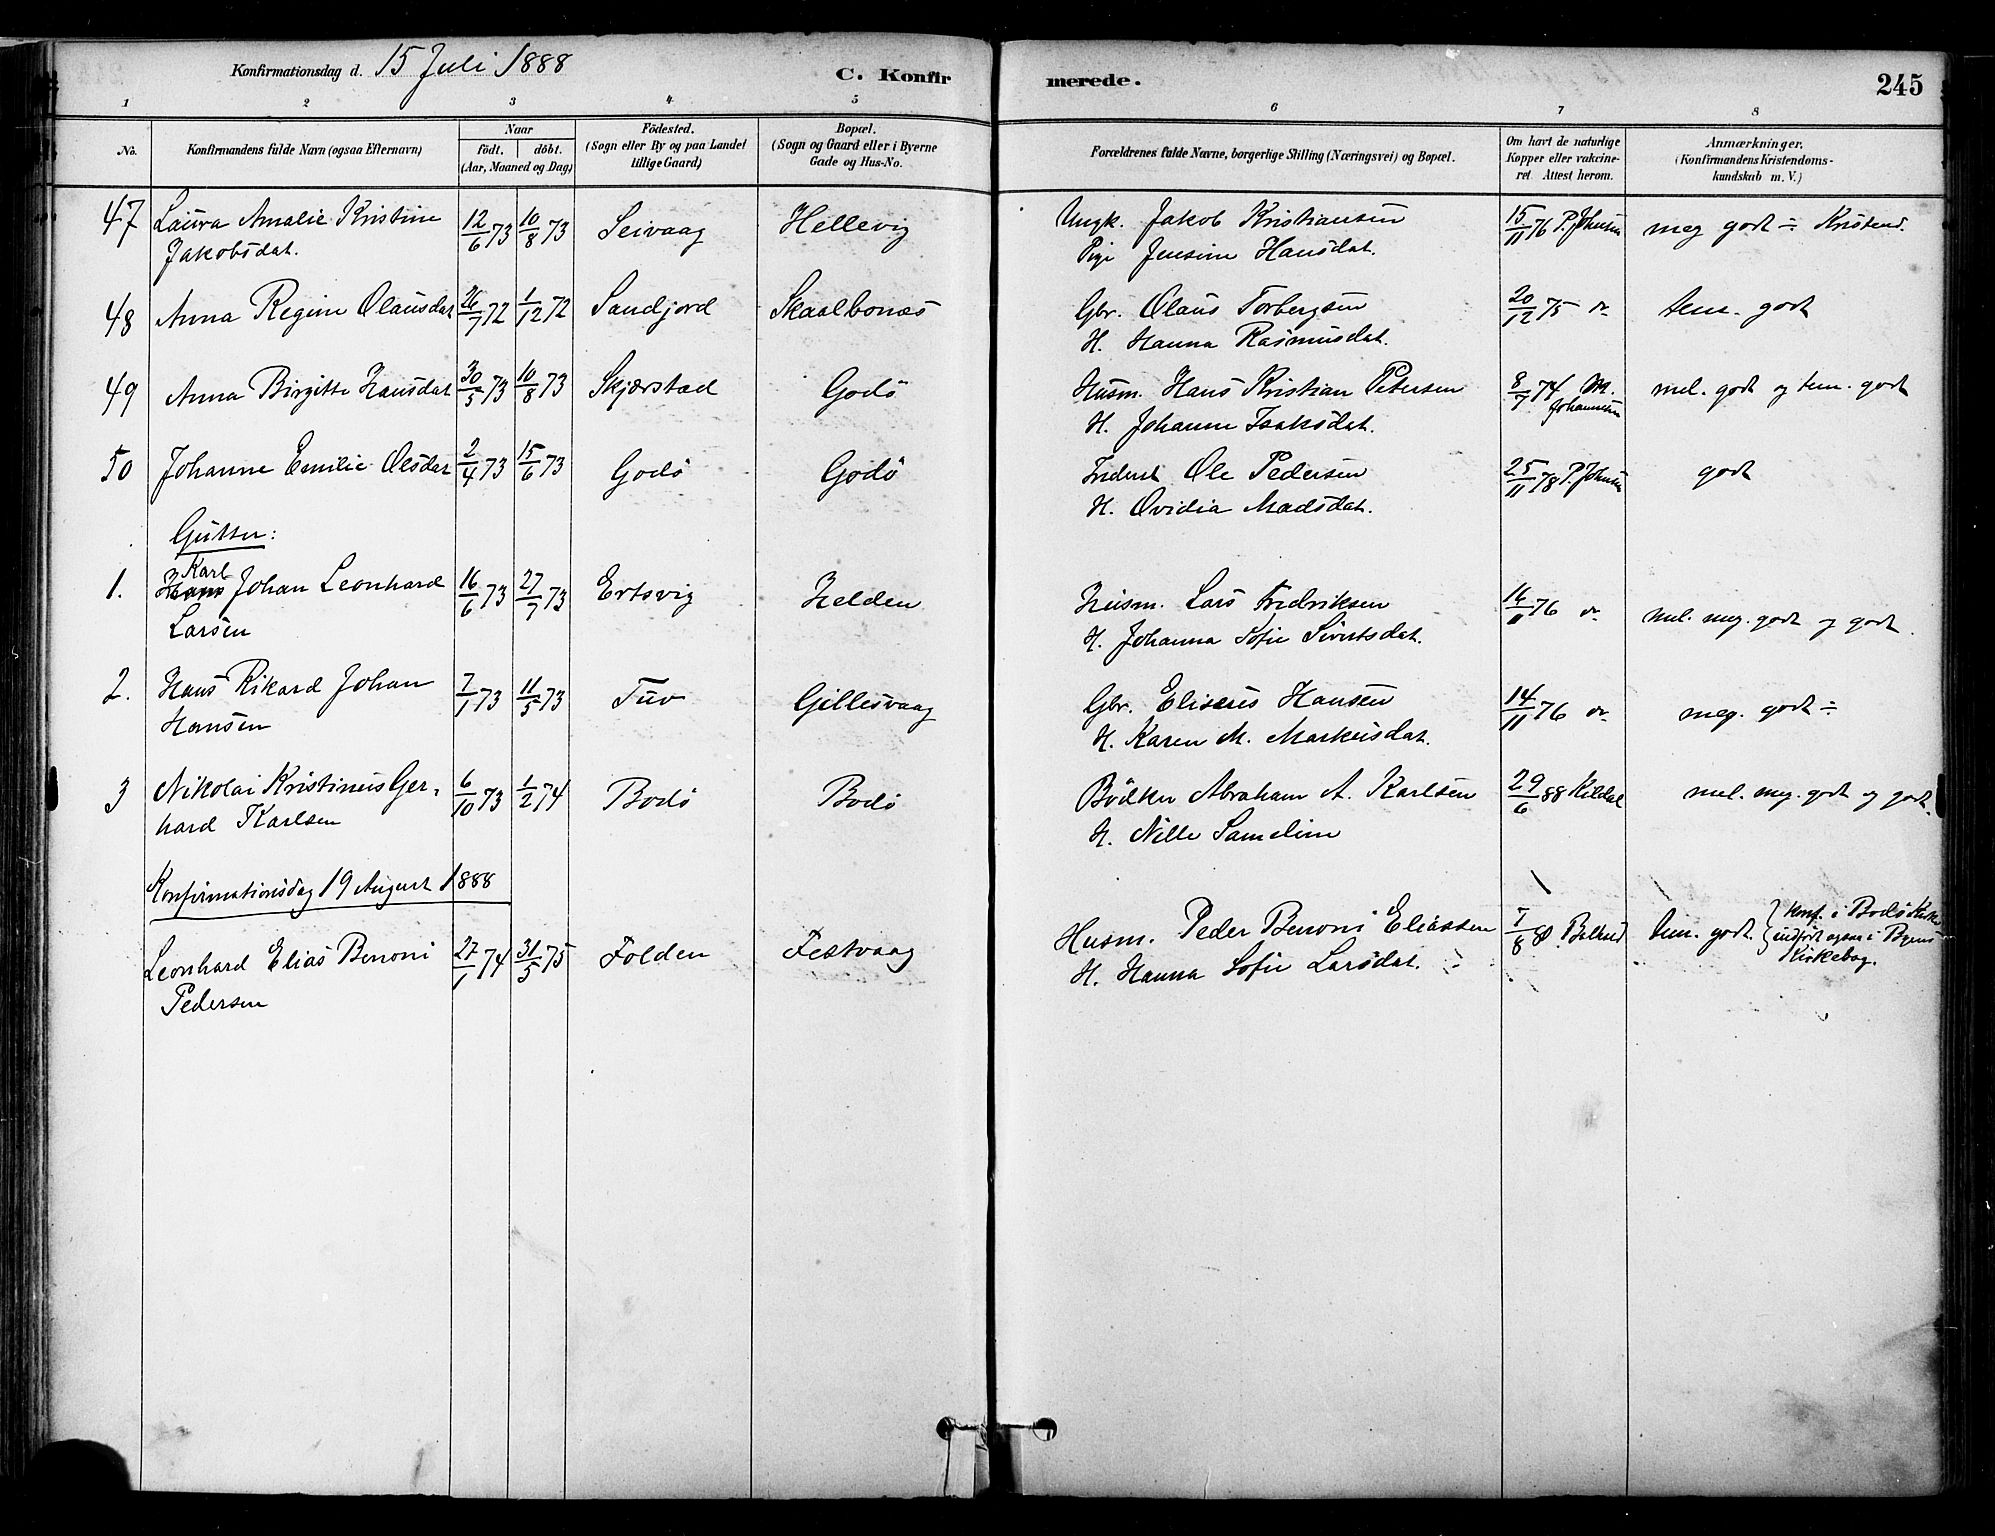 Konfirmationsdag d. 15 Juli 1888
C. Konfirmerede.
245
1 2 3 4 5 6 7 8
No.
Konfirmandens fulde Navn (ogsaa Efternavn)
Naar
födt. döbt.
(Aar, Maaned og Dag)
Födested.
(Sogn eller By og paa Landet
tillige Gaard)
Bopæl.
(Sogn og Gaard eller i Byerne
Gade og Hus-No.
Forældrenes fulde Navne, borgerlige Stilling (Næringsvei) og Bopæl.
Om havt de naturlige
Kopper eller vakcine-
ret Attest herom.
Anmærkninger.
(Konfirmandens Kristendoms-
kundskab m. V.)
47 Laura Amalie Kristine 12/6 73 10/8 73 Seivaag Hellevig Ungk. Jakob Kristiansen 15/11 76 P. Johnsen meg godt ÷ Kristend.
Jakobsdat. Pige Jensine Hansdat.
48 Anna Regine Olausdat 26/7 72 1/12 72 Sandjord Skaalbones Gbr. Olaus Torbergsen 20/12 75 do tem. godt
H. Hanna Rasmusdat.
49 Anna Birgitte Hansdat 30/5 73 10/8 73 Skjærstad Godö Husm. Hans Kristian Petersen 8/7 74 M. mel. godt og tem. godt
H. Johanne Isaksdat. Johannesen
50 Johanne Emilie Olsdat 2/4 73 15/6 73 Godö Godö Inderst Ole Pedersen 25/11 78 P. Johnsen godt
H. Ovidia Madsdat.
Gutter:
Karl
1. Hans Johan Leonhard 16/6 73 27/7 73 Ertsvig Helden Husm. Lars Fredriksen 16/11 76 do mel. meg. godt og godt.
Larsen H. Johanna Sofie Sivertsdat.
2. Hans Rikard Johan 7/1 73 11/5 73 Tuv Gillesvaag Gbr. Eliseus Hansen 14/11 76 do meg. godt ÷
Hansen H. Karen M. Markusdat.
3 Nikolai Kristinus Ger- 6/10 73 1/2 74 Bodö Bodö Bödker Abraham A. Karlsen 29/6 88 Kildal mel. meg. godt og godt.
hard Karlsen H. Nille Sameline
Konfirmationsdag 19 August 1888
Leonhard Elias Benoni 27/1 74 31/5 75 Folden Festvaag Husm. Peder Benoni Eliassen 7/8 80 tem. godt. Konf. i Bodö Kirke
Pedersen H. Hanna Sofie Larsdat. indført ogsaa i Byens
Kirkebog.